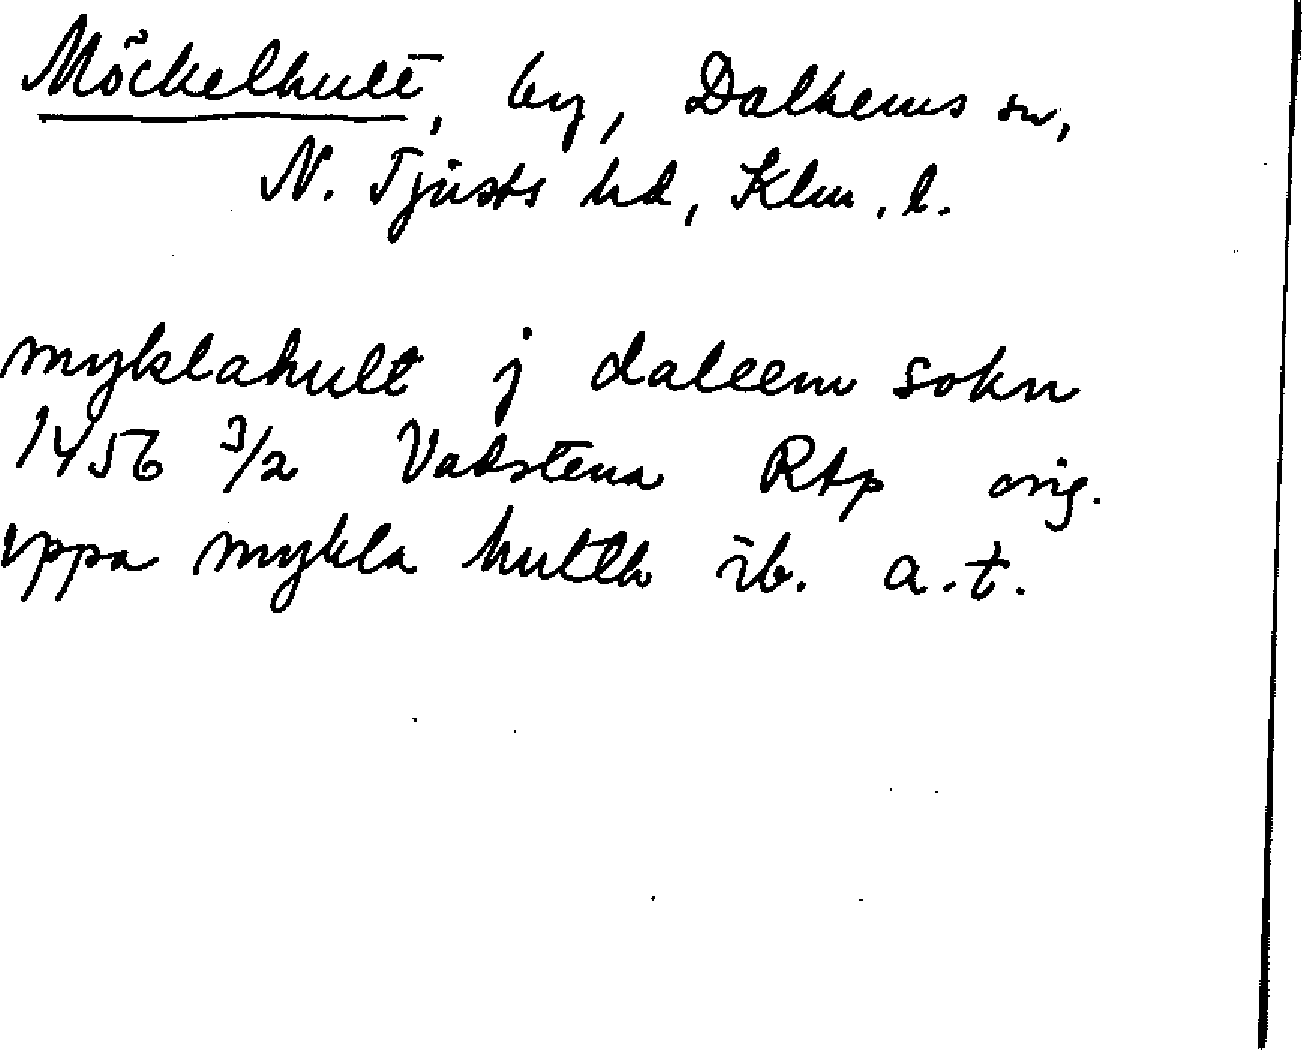 Möckelhult, by, Dalhems sn,
N. Tjusts hd, Klm. l.
myklahult j daleem sokn
1456 3/2 Vadstena RAp orig.
vppa mykla hulth ib. a.t.